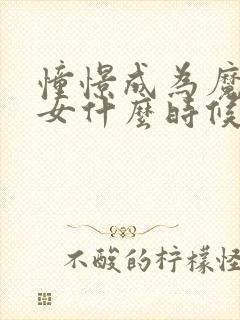 憧憬成為魔
女什麼時候
不酸的柠檬怪